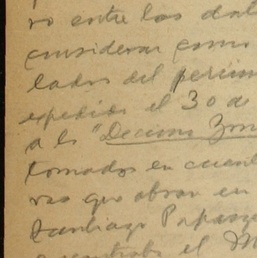 ro entre los dat
considerar como
lados del period
expedida el 30 de
a la "Decima Zon
tomados en cuent
ras que obran en
Santiago Papasq
el M